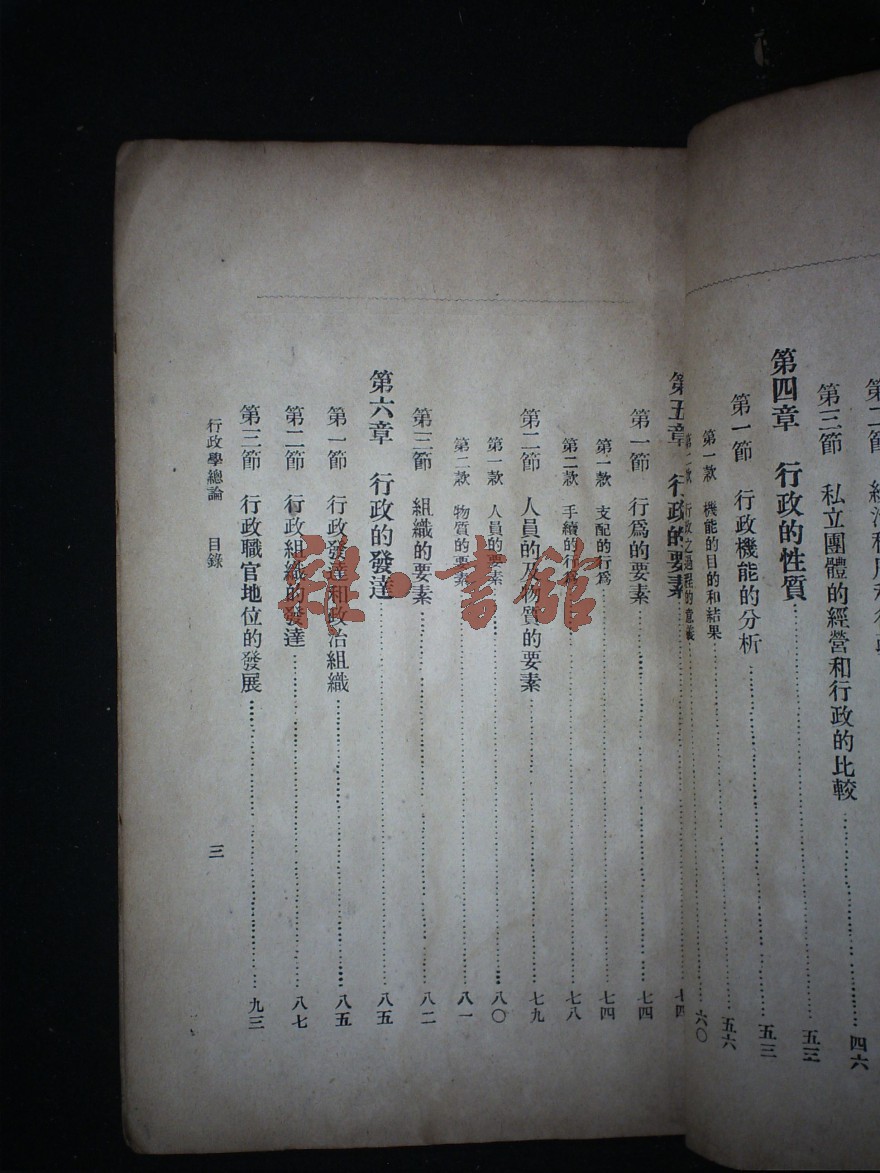 第三節　私立團體的經營和行政的比較……四六
第四章　行政的性質……五三
第一節　行政機能的分析……五三
第一款　機能的目的和結果……五六
第二款　行政之過程的意義……六〇
第五章　行政的要素……七四
第一節　行爲的要素……七四
第一款　支配的行爲……七四
第二款　手續的行爲……七八
第二節　人員的及物質的要素……七九
第一款　人員的要素……八〇
第二款　物質的要素……八一
第三節　組織的要素……八二
第六章　行政的發達……八五
第一節　行政發達和政治組織……八五
第二節　行政組織的發達……八七
第三節　行政職官地位的發展……九三
行政學總論　目錄　三
雜·書館